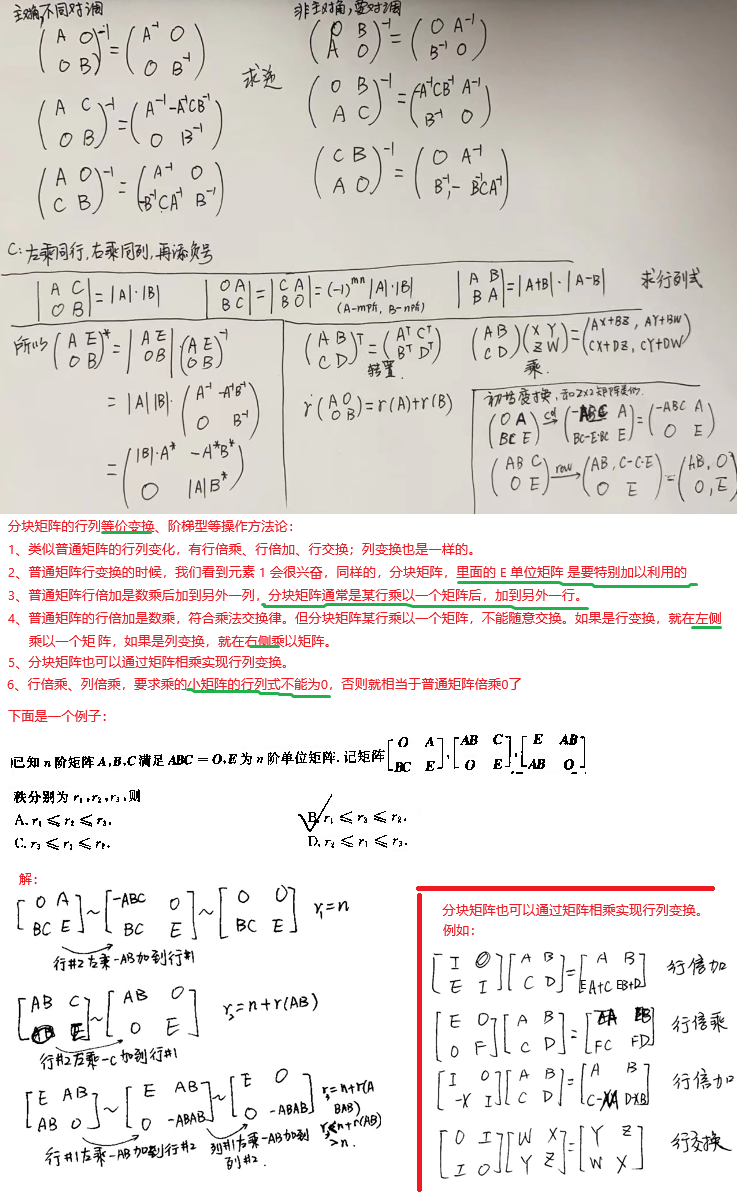 主对角,不同对调
非主对角,要对调
(A O; O B)⁻¹ = (A⁻¹ O; O B⁻¹)
(O B; A O)⁻¹ = (O A⁻¹; B⁻¹ O)
求逆
(A C; O B)⁻¹ = (A⁻¹ -A⁻¹CB⁻¹; O B⁻¹)
(O B; A C)⁻¹ = (-A⁻¹CB⁻¹ A⁻¹; B⁻¹ O)
(A O; C B)⁻¹ = (A⁻¹ O; -B⁻¹CA⁻¹ B⁻¹)
(C B; A O)⁻¹ = (O A⁻¹; B⁻¹, -B⁻¹CA⁻¹)
C:左乘同行,右乘同列,再添负号
|A C; O B| = |A|·|B|
|O A; B C| = |C A; B O| = (-1)^{mn} |A|·|B|
(A-m阶, B-n阶)
|A B; B A| = |A+B|·|A-B|
求行列式
所以 (A E; O B)* = |A E; O B| (A E; O B)⁻¹
= |A||B|·(A⁻¹ -A⁻¹B⁻¹; O B⁻¹)
= (|B|·A* -A*B*; O |A|B*)
(A B; C D)ᵀ = (Aᵀ Cᵀ; Bᵀ Dᵀ)
转置
(A B; C D)(X Y; Z W) = (AX+BZ, AY+BW; CX+DZ, CY+DW)
乘.
r(A O; O B) = r(A)+r(B)
初等变换,和2X2矩阵类似.
(O A; BC E) →col (-ABC A; BC-E·BC E) = (-ABC A; O E)
(AB C; O E) →row (AB, C-C·E; O E) = (AB, O; O, E)
分块矩阵的行列等价变换、阶梯型等操作方法论:
1、类似普通矩阵的行列变化,有行倍乘、行倍加、行交换;列变换也是一样的。
2、普通矩阵行变换的时候,我们看到元素 1 会很兴奋,同样的,分块矩阵,里面的 E 单位矩阵 是要特别加以利用的
3、普通矩阵行倍加是数乘后加到另外一列,分块矩阵通常是某行乘以一个矩阵后,加到另外一行。
4、普通矩阵的行倍加是数乘,符合乘法交换律。但分块矩阵某行乘以一个矩阵,不能随意交换。如果是行变换,就在左侧
乘以一个矩阵,如果是列变换,就在右侧乘以矩阵。
5、分块矩阵也可以通过矩阵相乘实现行列变换。
6、行倍乘、列倍乘,要求乘的小矩阵的行列式不能为0,否则就相当于普通矩阵倍乘0了
下面是一个例子:
已知 n 阶矩阵 A,B,C 满足 ABC = O,E 为 n 阶单位矩阵. 记矩阵[O A; BC E],[AB C; O E],[E AB; AB O]
秩分别为 r₁,r₂,r₃,则
A. r₁ ≤ r₂ ≤ r₃.
B. r₁ ≤ r₃ ≤ r₂.
C. r₃ ≤ r₁ ≤ r₂.
D. r₂ ≤ r₁ ≤ r₃.
解:
[O A; BC E] ~ [-ABC O; BC E] ~ [O O; BC E] r₁=n
行#2左乘-AB加到行#1
[AB C; E] ~ [AB O; O E] r₂=n+r(AB)
行#2左乘-C加到行#1
[E AB; AB O] ~ [E AB; O -ABAB] ~ [E O; O -ABAB]
r₃=n+r(A
BAB)
r₃≤n+r(AB)
≥n.
行#1左乘-AB加到行#2
列#1右乘-AB加到
列#2.
分块矩阵也可以通过矩阵相乘实现行列变换。
例如:
[I O; E I][A B; C D] = [A B; EA+C EB+D] 行倍加
[E O; O F][A B; C D] = [EA EB; FC FD] 行倍乘
[I O; -X I][A B; C D] = [A B; C-XA D-XB] 行倍加
[O I; I O][W X; Y Z] = [Y Z; W X] 行交换